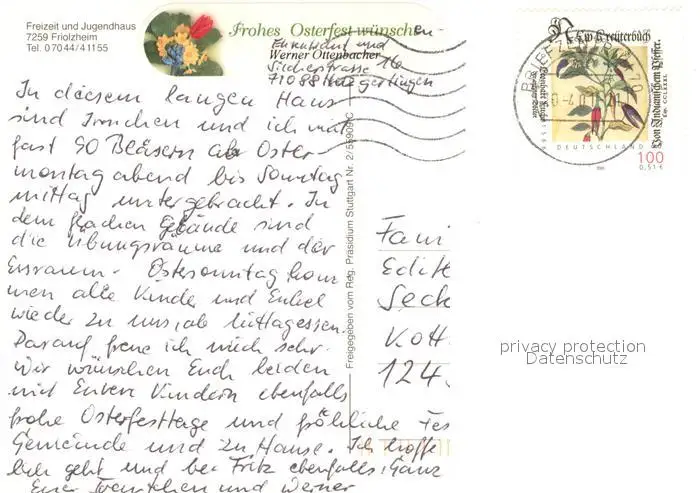 Freizeit und Jugendhaus
7259 Friolzheim
Tel. 0 70 44/4 11 55
Frohes Osterfest wünschen-
und
Werner Ottenbacher
Silcherstrasse 16
71088
In diesem langen Haus
sind Irmchen und ich mit
fast 90 Bläsern ab Oster-
montag abend bis Sonntag
mittag untergebracht. In
dem flachen Gebäude sind
die Übungsräume und der
Essraum. Ostersonntag kom
men alle Kinder und Enkel
wieder zu uns, ab Mittagessen.
Darauf freue ich mich sehr.
Wir wünschen Euch beiden
mit Euren Kindern ebenfalls
frohe Osterfesttage und fröhliche Fes
Gemeinde und zu Hause. Ich hoffe
geht und bei Fritz ebenfalls. Ganz
Eure und Werner
Freigegeben vom Reg. Präsidium Stuttgart Nr. 2/
Fami
Edith
Seck
Kott
124
Kreüterbuch
BRIEFZENTRUM 70
Von Indianischem Pfeffer.
Cap. CCLXXXI.
DEUTSCHLAND
100
0,51 €
privacy protection
Datenschutz